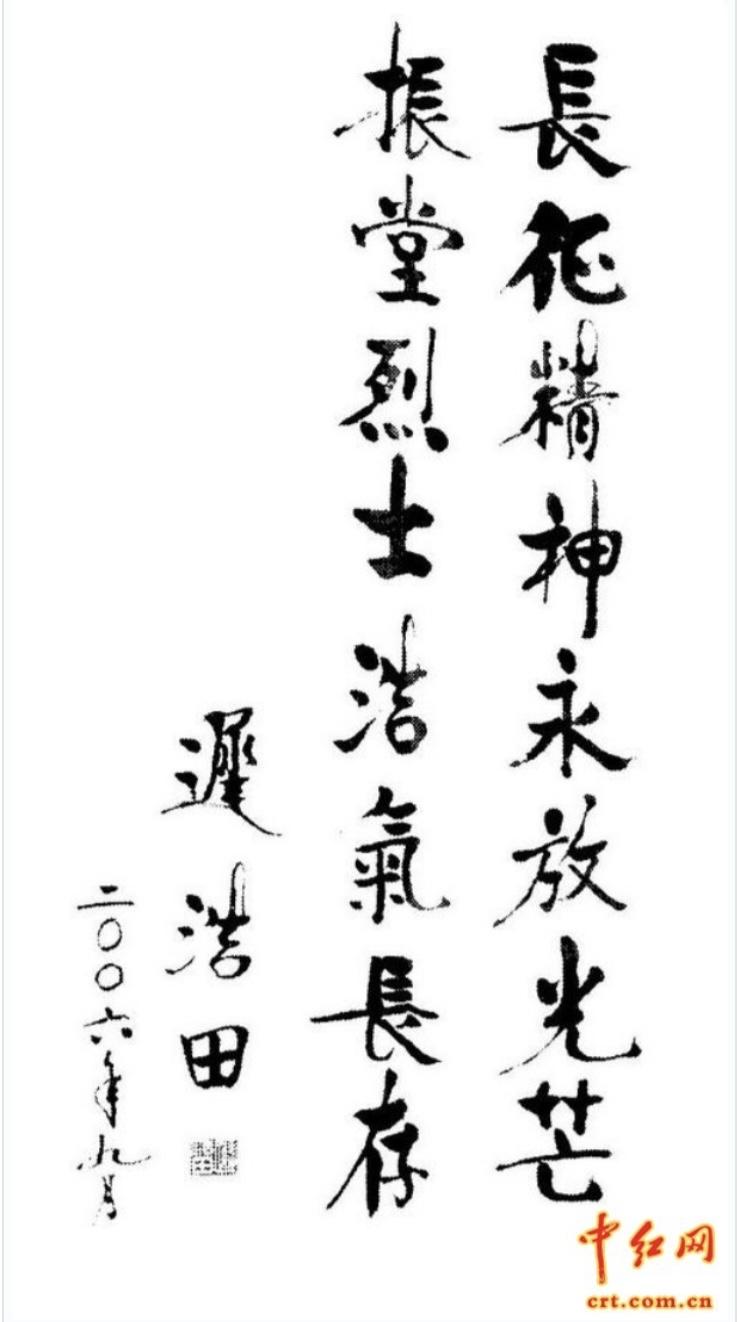 長征精神永放光芒
振堂烈士浩氣長存
遲浩田
二〇〇六年九月
中红网
crt.com.cn